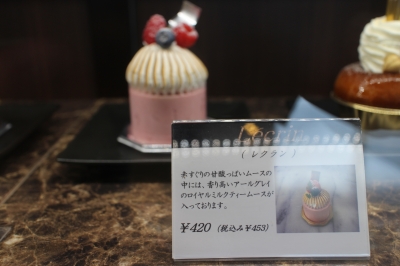 (レクラン)
赤すぐりの甘酸っぱいムースの
中には、香り高いアールグレイ
のロイヤルミルクティームースが
入っております。
￥420 (税込み￥453)